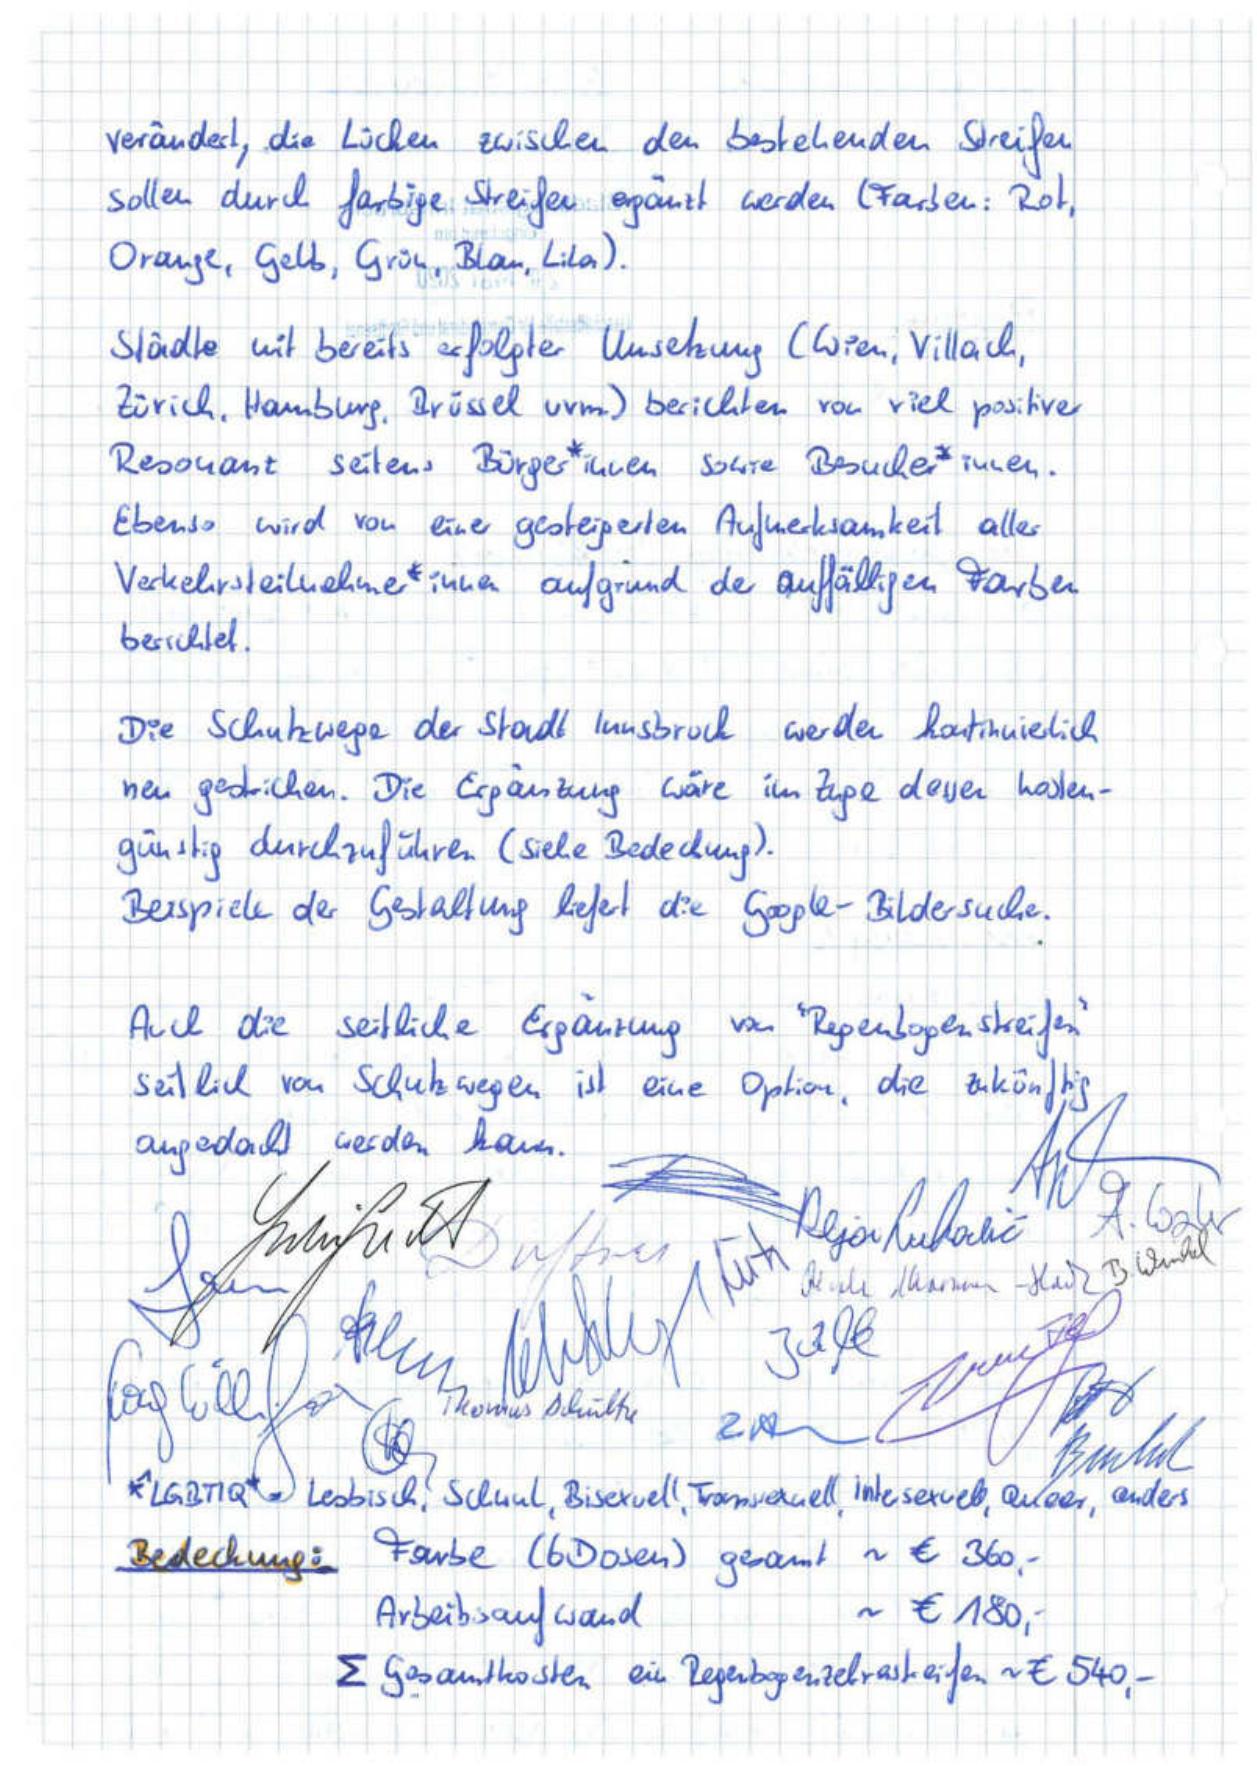 verändert, die Lücken zwischen den bestehenden Streifen
sollen durch farbige Streifen ergänzt werden (Farben: Rot,
Orange, Gelb, Grün, Blau, Lila).
Städte mit bereits erfolgter Umsetzung (Wien, Villach,
Zürich, Hamburg, Brüssel uvm.) berichten von viel positiver
Resonanz seitens Bürger*innen sowie Besucher*innen.
Ebenso wird von einer gesteigerten Aufmerksamkeit aller
Verkehrsteilnehmer*innen aufgrund der auffälligen Farben
berichtet.
Die Schutzwege der Stadt Innsbruck werden kontinuierlich
neu gestrichen. Die Ergänzung wäre im Zuge dessen kosten-
günstig durchzuführen (siehe Bedeckung).
Beispiele der Gestaltung liefert die Google-Bildersuche.
Auch die seitliche Ergänzung von "Regenbogenstreifen"
seitlich von Schutzwegen ist eine Option, die zukünftig
angedacht werden kann.
Dejan Lukovic
B. Winkel
Thomas Schultze
*"LGBTIQ*" = Lesbisch, Schwul, Bisexuell, Transsexuell, Intersexuell, Queer, anders
Bedeckung: Farbe (6 Dosen) gesamt ~ € 360,-
Arbeitsaufwand ~ € 180,-
Σ Gesamtkosten ein Regenbogenzebrastreifen ~ € 540,-